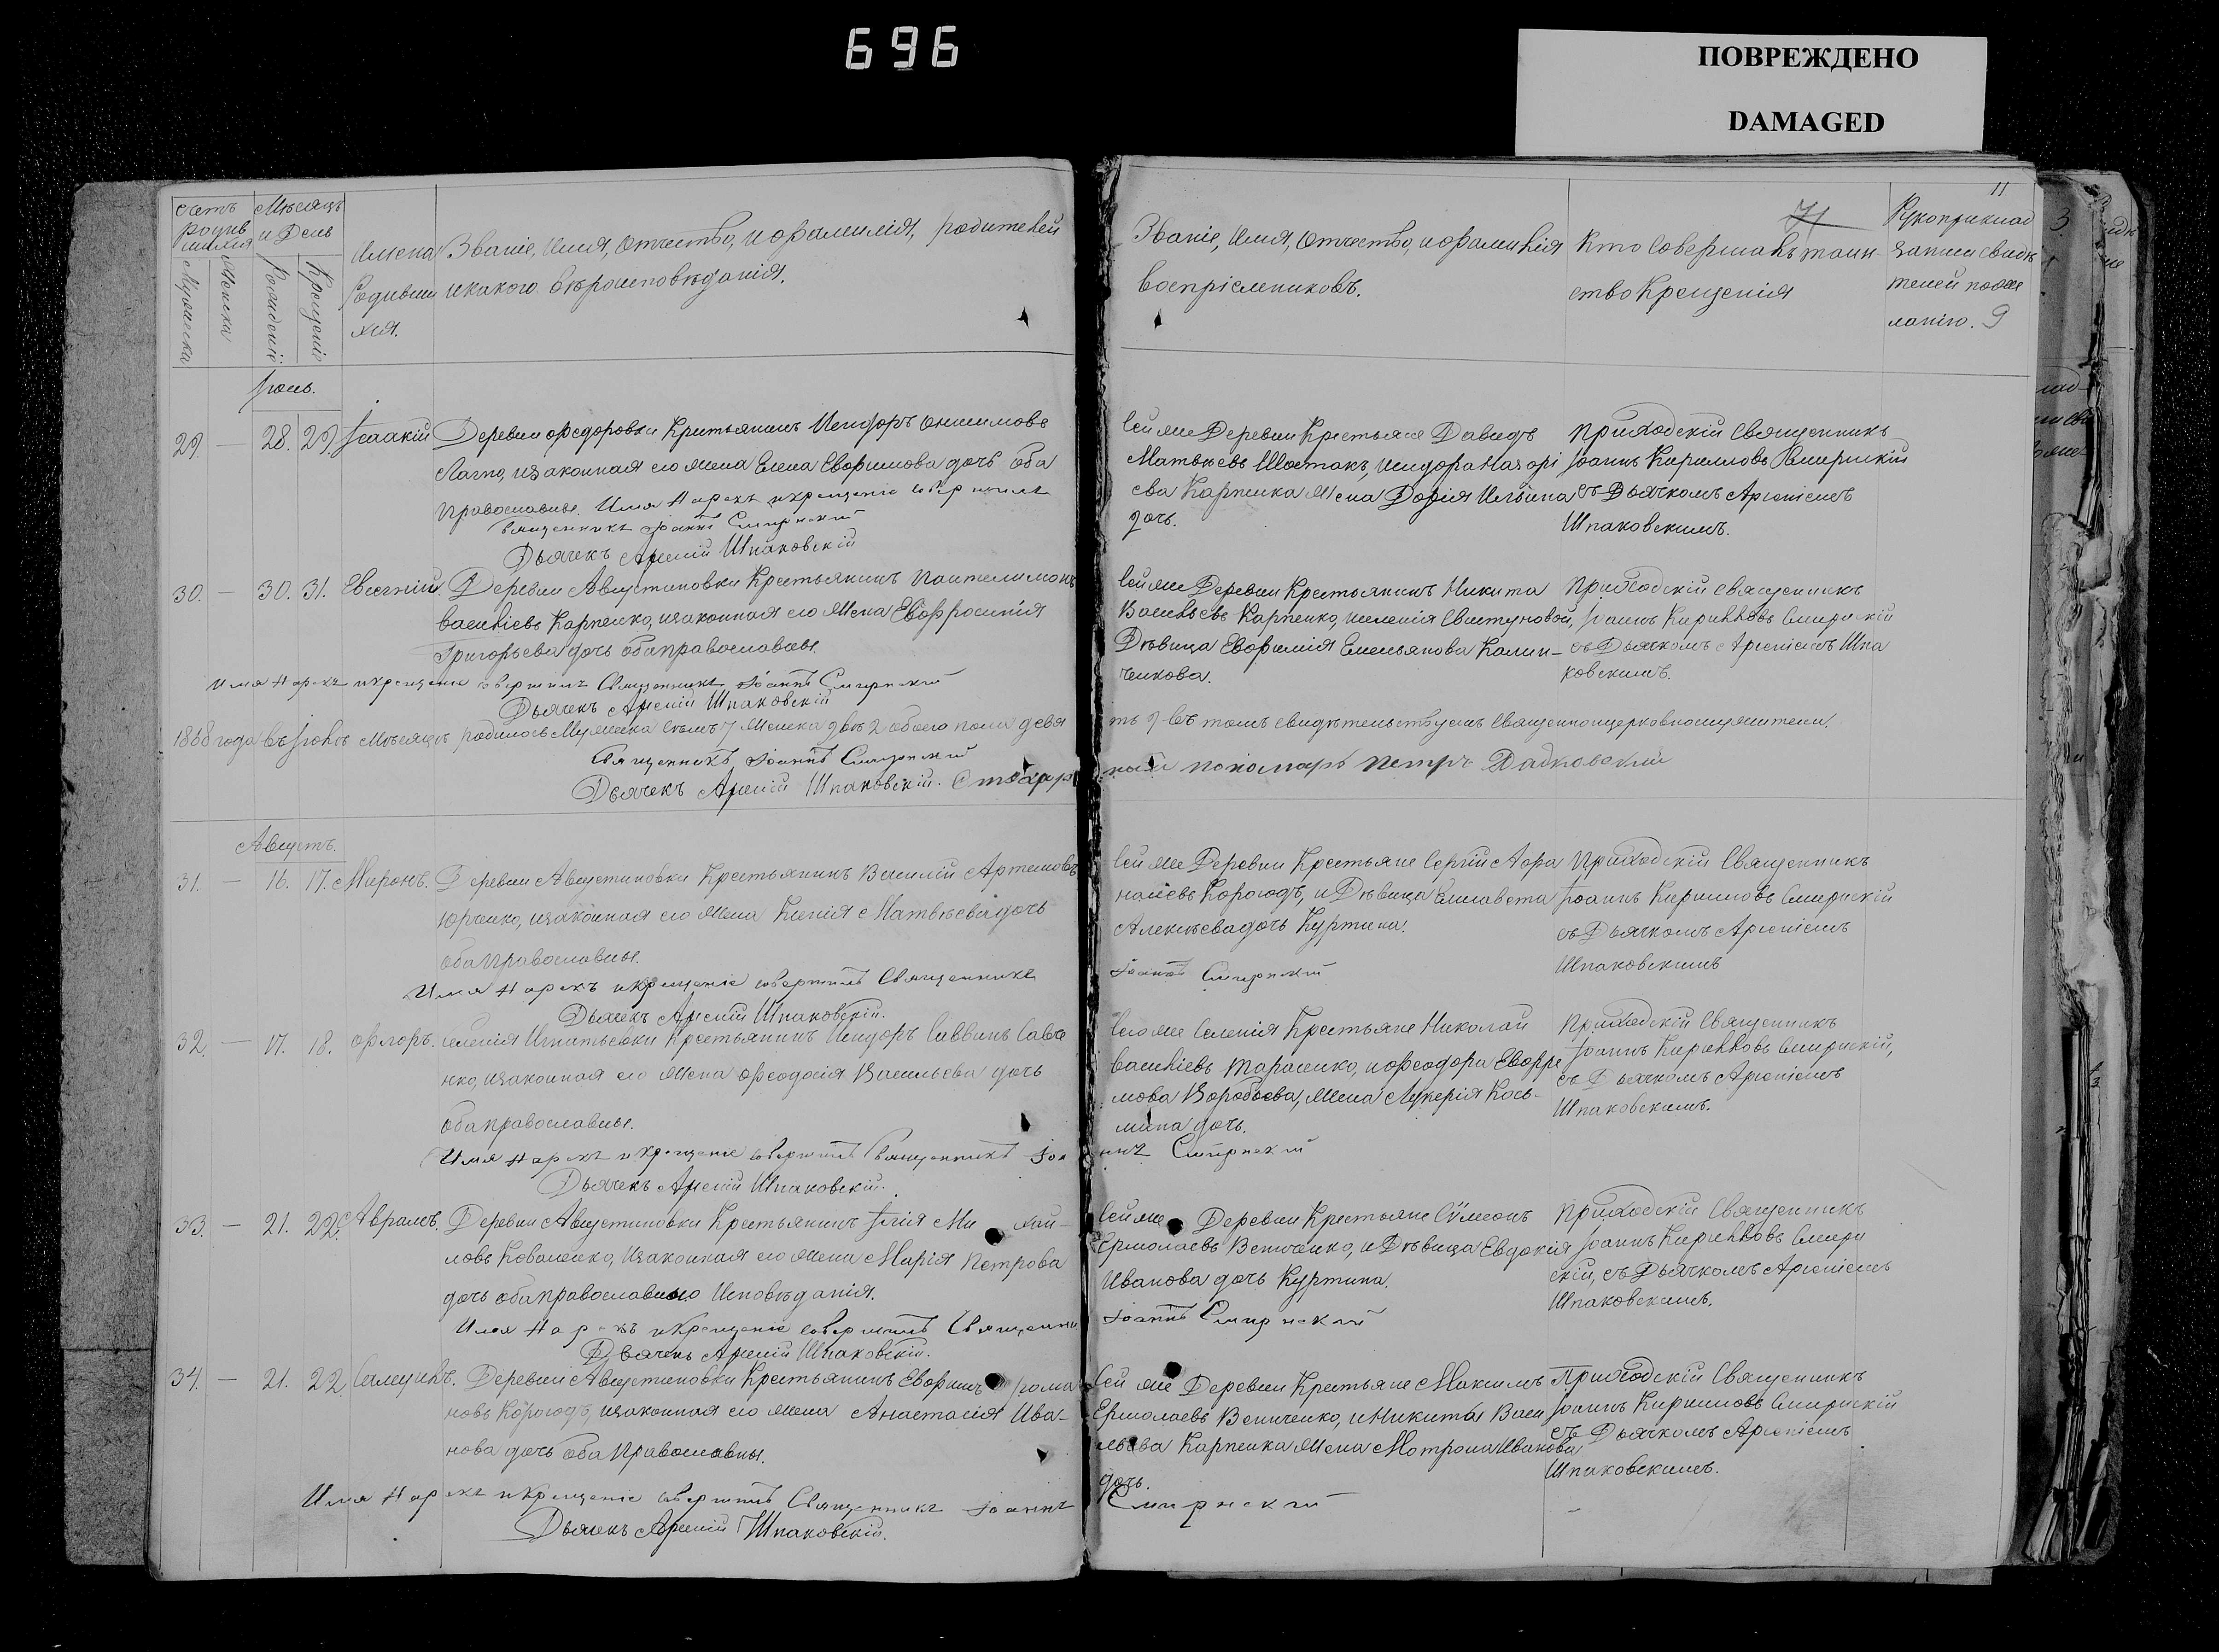 696
ПОВРЕЖДЕНО
DAMAGED
Счетъ родив шихся
Мужеска
Женска
Мѣсяцъ и День
Рожденія
Крещенія
Имена Родивши хся.
Званіе, Имя, Отчество, и фамилія, родителей
и какого вѣроисповѣданія.
29. — 28. 29. Іоаакій
Деревни Федоровки Крестьянинъ Исидоръ Онисимовъ
и законная его жена Елена Евфимова дочь оба
православны. Имя Нарекъ и крещеніе совершилъ
священникъ Іоаннъ Смирнскій
Дьячекъ Арсеній Шпаковскій
30. — 30. 31. Евгеній.
Деревни Августиновки Крестьянинъ Пантелимонъ
Васильевъ Карпенко, и законная его жена Евфросинія
Григорьева дочь оба православны.
Имя Нарекъ и крещеніе совершилъ Священникъ Іоаннъ Смирнскій
Дьячекъ Арсеній Шпаковскій
1868 года въ Іюлѣ мѣсяцѣ родилось Мужеска семь 7 Женска двѣ 2 обоего пола девя
Священникъ Іоаннъ Смирнскій
Дьячекъ Арсеній Шпаковскій.
Августъ.
31. — 16. 17. Миронъ.
Деревни Августиновки Крестьянинъ Василій Артемовъ
Юрченко, и законная его жена Ксенія Матвѣева дочь
оба православны.
Имя Нарекъ и крещеніе совершилъ Священникъ
Дьячекъ Арсеній Шпаковскій.
32. — 17. 18. Флоръ.
селенія Игнатьевки Крестьянинъ Исидоръ Саввинъ Савче
нко, и законная его жена Феодосія Васильева дочь
оба православны.
Имя Нарекъ и крещеніе совершилъ Священникъ Іоа
Дьячекъ Арсеній Шпаковскій.
33. — 21. 22. Аврамъ.
Деревни Августиновки Крестьянинъ Илія Ми хай-
ловъ Коваленко, и законная его жена Марія Петрова
дочь оба православнаго Исповѣданія.
Имя Нарекъ и крещеніе совершилъ Священни
Дьячекъ Арсеній Шпаковскій.
34. — 21. 22. Самуилъ.
Деревни Августиновки Крестьянинъ Евфимъ Рома
новъ Корогодъ, и законная его жена Анастасія Ива-
нова дочь оба Православны.
Имя Нарекъ и крещеніе совершилъ Священникъ Іоаннъ
Дьячекъ Арсеній Шпаковскій.
11
71
Званіе, Имя, Отчество, и фамилія
воспріемниковъ.
Кто совершалъ таин-
ство Крещенія
Рукоприклад
записи свидѣ
телей по же
ланію. 9
Сей же Деревни Крестьяне Давидъ
Матвѣевъ Шостакъ, Исидора Назорі
ева Карпенка жена Дарія Ильина
дочь.
Приходскій Священникъ
Іоаннъ Кирилловъ Смирнскій
съ Дьячкомъ Арсеніемъ
Шпаковскимъ.
Сей же Деревни Крестьянинъ Никита
Васильевъ Карпенко, и селенія Свистуновой,
Дѣвица Евфимія Емельянова Калин-
ченкова.
Приходскій Священникъ
Іоаннъ Кирилловъ Смирнскій
съ Дьячкомъ Арсеніемъ Шпа
ковскимъ.
ть 9 въ томъ свидѣтельствуемъ Священноцерковнослужители.
пономарь Петръ Дадковскій
Сей же Деревни Крестьяне Сергій Афа
насіевъ Корогодъ, и Дѣвица Елисавета
Алексѣева дочь Куртина.
Іоаннъ Смирнскій
Приходскій Священникъ
Іоаннъ Кирилловъ Смирнскій
съ Дьячкомъ Арсеніемъ
Шпаковскимъ
Сего же Селенія Крестьяне Николай
Васильевъ Тарасенко, и Феодора Ефре
мова Воробьева, жена Лукерія Кось-
мина дочь.
ннъ Смирнскій
Приходскій Священникъ
Іоаннъ Кирилловъ Смирнскій,
съ Дьячкомъ Арсеніемъ
Шпаковскимъ.
Сей же Деревни Крестьяне Сѵмеонъ
Ермолаевъ Величенко, и Дѣвица Евдокія
Иванова дочь Куртина.
Іоаннъ Смирнскій
Приходскій Священникъ
Іоаннъ Кирилловъ Смирн
скій, съ Дьячкомъ Арсеніемъ
Шпаковскимъ.
Сей же Деревни Крестьяне Максимъ
Ермолаевъ Величенко, и Никиты Васи
льева Карпенка жена Мотрона Иванова
дочь.
Смирнскій
Приходскій Священникъ
Іоаннъ Кирилловъ Смирнскій
съ Дьячкомъ Арсеніемъ
Шпаковскимъ.